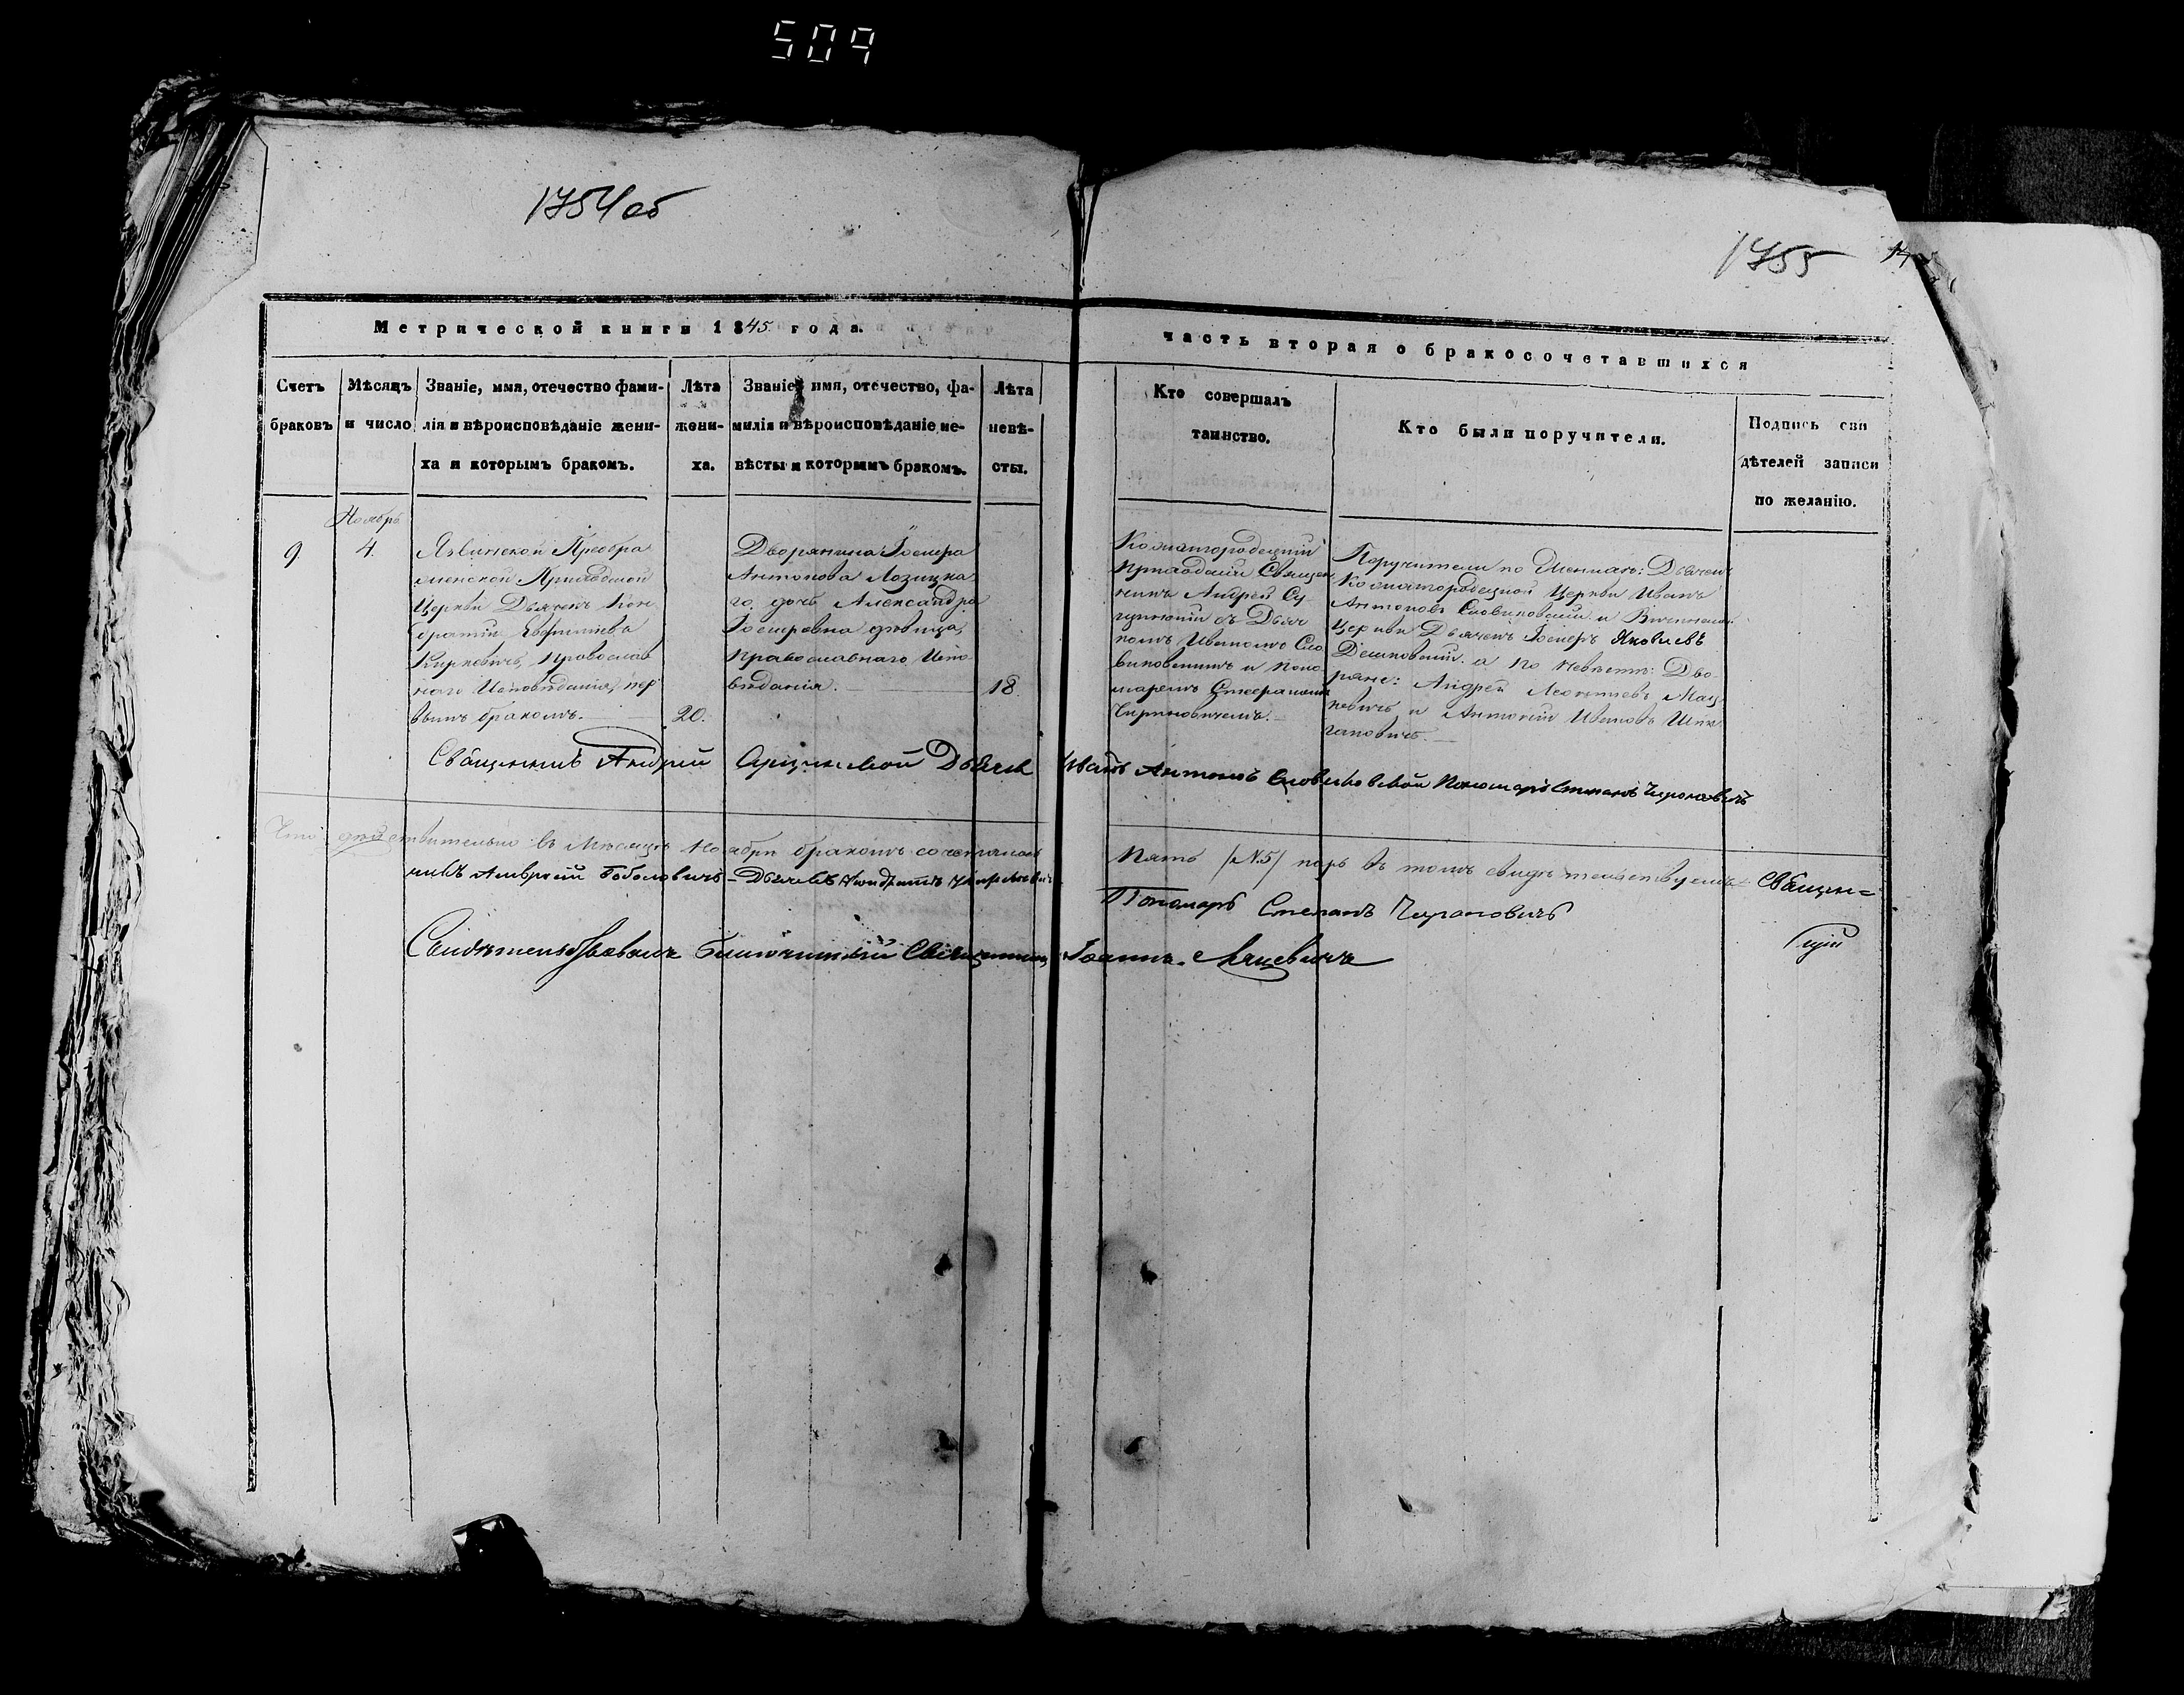 509
1754об
1755
Метрической книги 1845 года.
часть вторая о бракосочетавшихся
Счетъ браковъ
Мѣсяцъ и число
Званіе, имя, отечество фами-
лія и вѣроисповѣданіе жени-
ха и которымъ бракомъ.
Лѣта
жени-
ха.
Званіе, имя, отечество, фа-
милія и вѣроисповѣданіе не-
вѣсты и которымъ бракомъ.
Лѣта
невѣ-
сты.
Кто совершалъ
таинство.
Кто были поручители.
Подпись сви
дѣтелей записи
по желанію.
Ноябрь
9
4.
Преобра
женской Приходской
Церкви Дьячекъ Кон
дратій
Киркевичъ, Православ
наго Исповѣданія, пер
вымъ бракомъ.
20.
Дворянина Іосифа
Антонова Лозицка
го дочь Александра
Іосифовна дѣвица,
православнаго Испо
вѣданія.
18.
Приходскій Священ
никъ Андрей Су
съ Дьяч
комъ Иваномъ Сло
виковскимъ и поно
маремъ Стефаномъ
Поручители по Женихѣ: Дьячекъ
Церкви Иванъ
Антоновъ Словиковскій и
Церкви Дьячекъ Іосифъ Яковлевъ
а по невѣстѣ: Дво
ряне: Андрей Леонтьевъ Мац
кевичъ и Антоній Ивановъ
Священникъ Андрей
Дьячекъ Иванъ Антоновъ Словиковской Пономарь Стефанъ
Что дѣйствительно въ Мѣсяцѣ Ноябрѣ бракомъ сочеталось
Пять /№5/ паръ въ томъ свидѣтельствуемъ Священ=
никъ Амвросій
Дьячекъ Кондратъ Киркевичъ
Пономарь Стефанъ
Свидѣтельствовалъ Благочинный Священникъ Іоаннъ